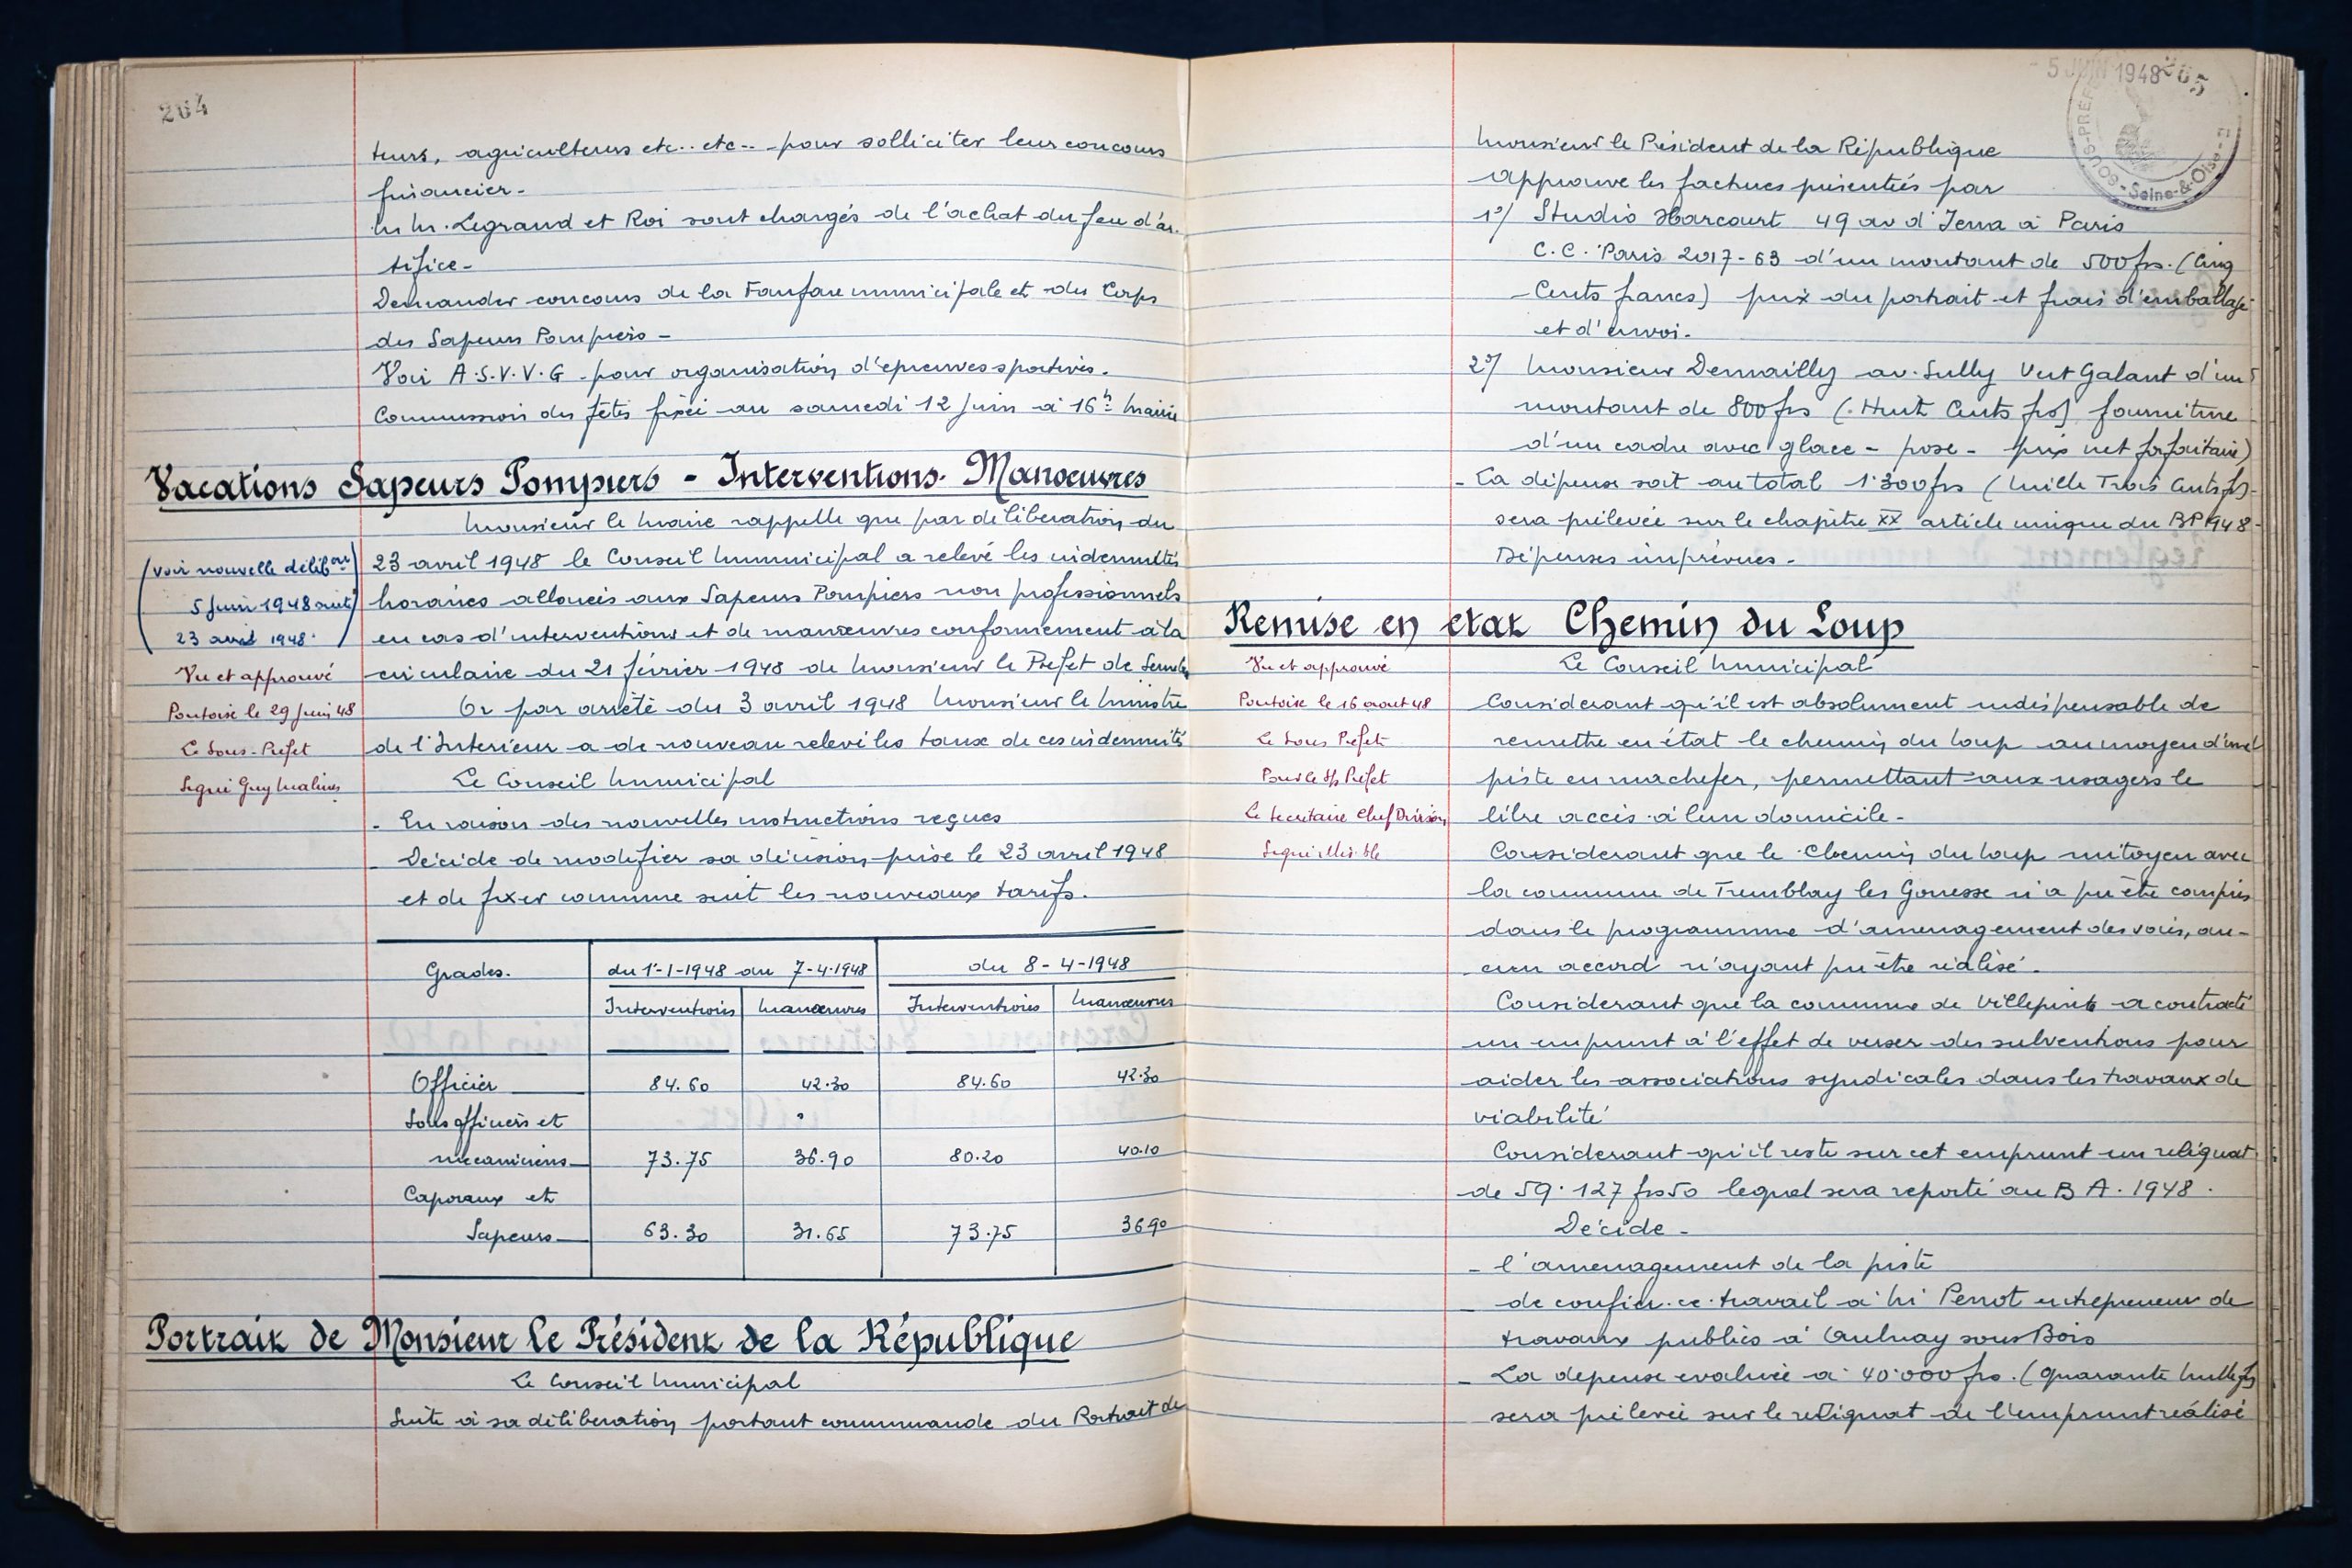 264
teurs, agriculteurs etc.. etc.. pour solliciter leur concours
financier -
M M. Legrand et Roi sont chargés de l'achat du feu d'ar-
tifice -
Demander concours de la Fanfare municipale et du Corps
des Sapeurs Pompiers -
Voir A.S.V.V.G pour organisation d'epreuves sportives.
Commission des fêtes fixée au samedi 12 Juin à 16h Mairie
Vacations Sapeurs Pompiers - Interventions. Manoeuvres
Monsieur le Maire rappelle que par déliberation du
23 avril 1948 le Conseil Municipal a relevé les indemnités
horaires allouées aux Sapeurs Pompiers non professionnels
en cas d'interventions et de manœuvres conformement à la
circulaire du 21 février 1948 de Monsieur le Prefet de Seine
Or par arrêté du 3 avril 1948 Monsieur le Ministre
de l'Interieur a de nouveau relevé les taux de ces indemnités
Le Conseil Municipal
- En raison des nouvelles instructions reçues
- Décide de modifier sa décision prise le 23 avril 1948
et de fixer comme suit les nouveaux tarifs.
(voir nouvelle délibon
5 Juin 1948
23 avril 1948.)
Vu et approuvé
Pontoise le 29 Juin 48
Le Sous-Prefet
Signé Guy
Grades. du 1-1-1948 au 7-4-1948 du 8-4-1948
Interventions Manœuvres Interventions Manœuvres
Officier 84.60 42.30 84.60 42.30
Sous officiers et
mécaniciens 73.75 36.90 80.20 40.10
Caporaux et
Sapeurs 63.30 31.65 73.75 36.90
Portrait de Monsieur le Président de la République
Le Conseil Municipal
Suite à sa déliberation portant commande du Portrait de
- 5 JUIN 1948 265
SOUS-PREFE
Seine-&-Oise
Monsieur le Président de la République
approuve les factures présentées par
1°/ Studio Harcourt 49 av d'Iena à Paris
C.C. Paris 2017-63 d'un montant de 500 frs. (Cinq
Cents francs) prix du portrait et frais d'emballage
et d'envoi.
2°/ Monsieur Demailly av. Sully Vert Galant d'un
montant de 800 frs (Huit Cents frs) fourniture
d'un cadre avec glace - pose - prix net forfaitaire)
- La dépense soit au total 1.300 frs (Mille Trois Cents frs)
sera prélevée sur le chapitre XX article unique du BP 1948 -
Dépenses imprévues -
Remise en etat Chemin du Loup
Vu et approuvé
Pontoise le 16 aout 48
Le Sous Prefet
Pour le S/s Prefet
Le Secretaire Chef Division
Signé illisible
Le Conseil Municipal
Considerant qu'il est absolument indispensable de
remettre en état le chemin du Loup au moyen d'une
piste en machefer, permettant aux usagers le
libre accès à leur domicile -
Considerant que le Chemin du Loup mitoyen avec
la commune de Tremblay les Gonesse n'a pu être compris
dans le programme d'amenagement des voies, au-
cun accord n'ayant pu être réalisé.
Considerant que la commune de Villepinte a contracté
un emprunt à l'effet de verser des subventions pour
aider les associations syndicales dans les travaux de
viabilité
Considerant qu'il reste sur cet emprunt un reliquat
de 59.127 frs 50 lequel sera reporté au B A. 1948.
Décide -
- l'amenagement de la piste
- de confier ce travail à Mr Perrot entrepreneur de
travaux publics à Aulnay sous Bois
- La depense evaluée à 40.000 frs. (quarante mille frs
sera prélevée sur le reliquat de l'emprunt réalisé